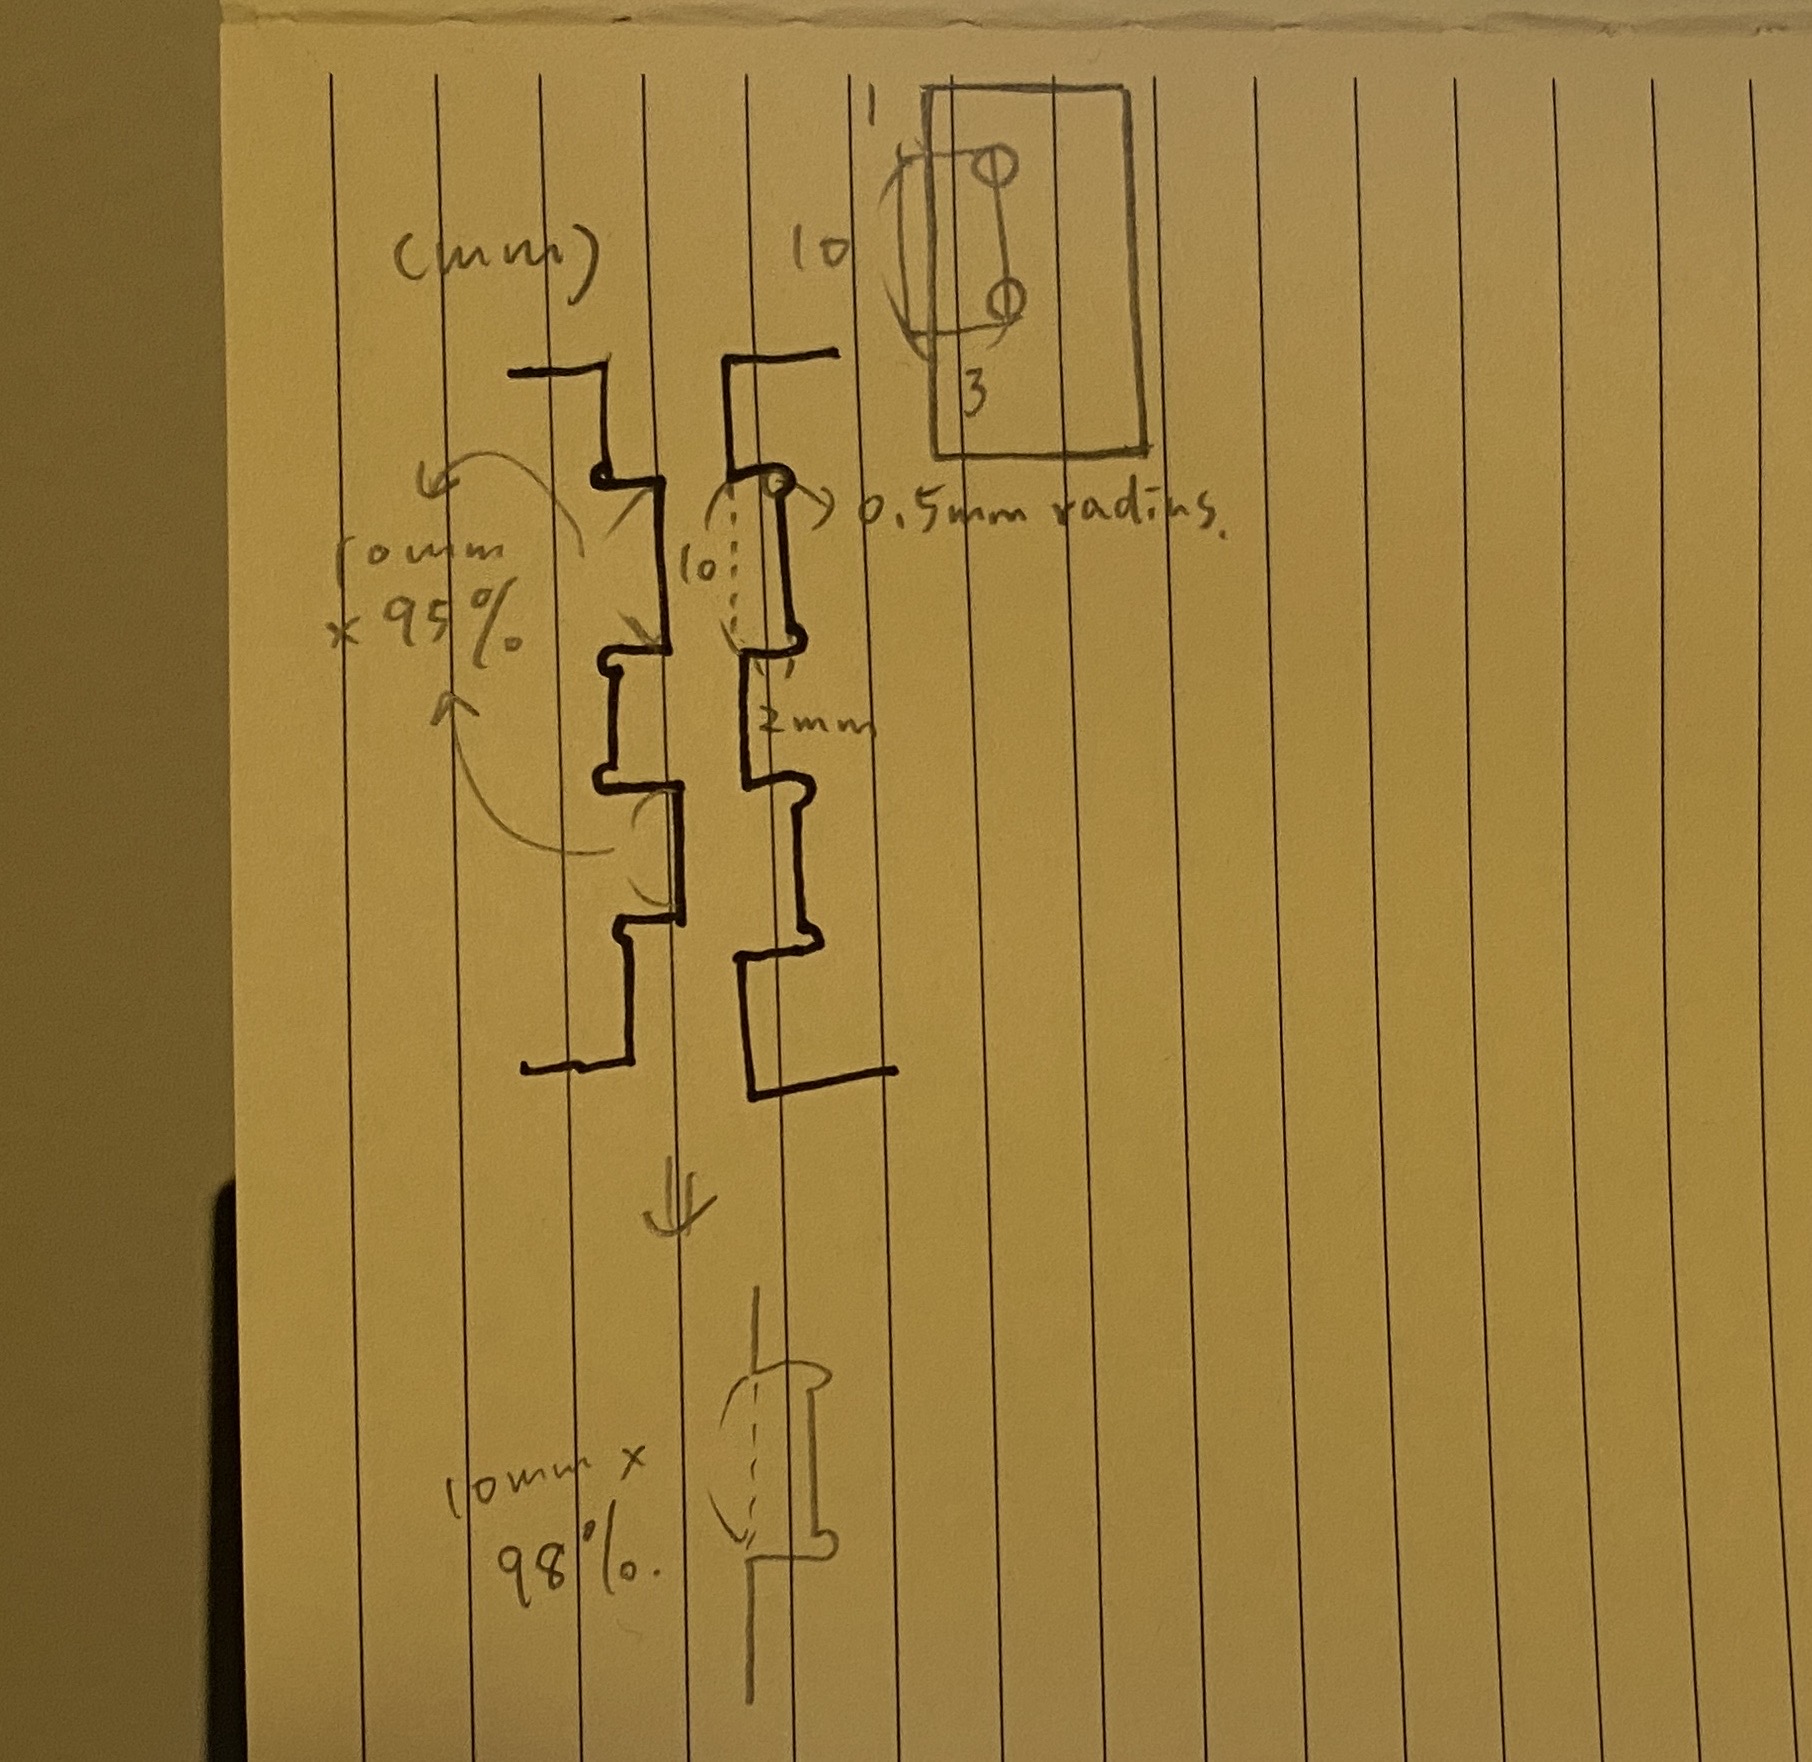 1
(mm)
10
3
0.5mm radius.
10mm
x 95%
10
2mm
10mm x
98%.